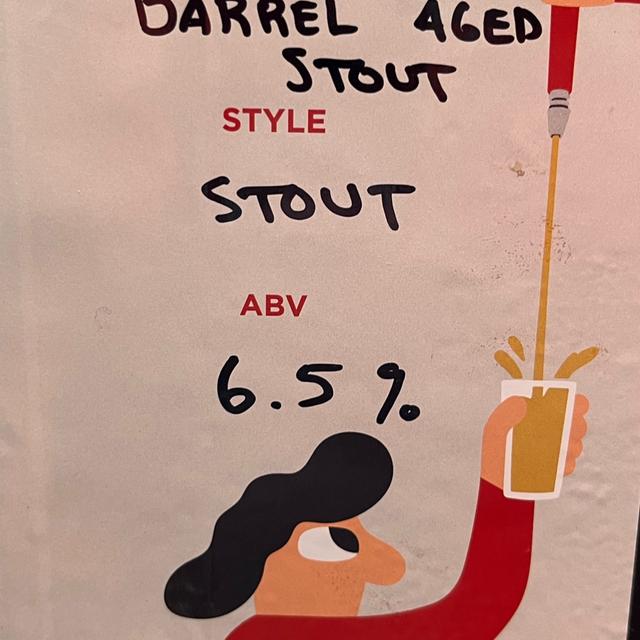 BARREL AGED
STOUT
STYLE
STOUT
ABV
6.5%